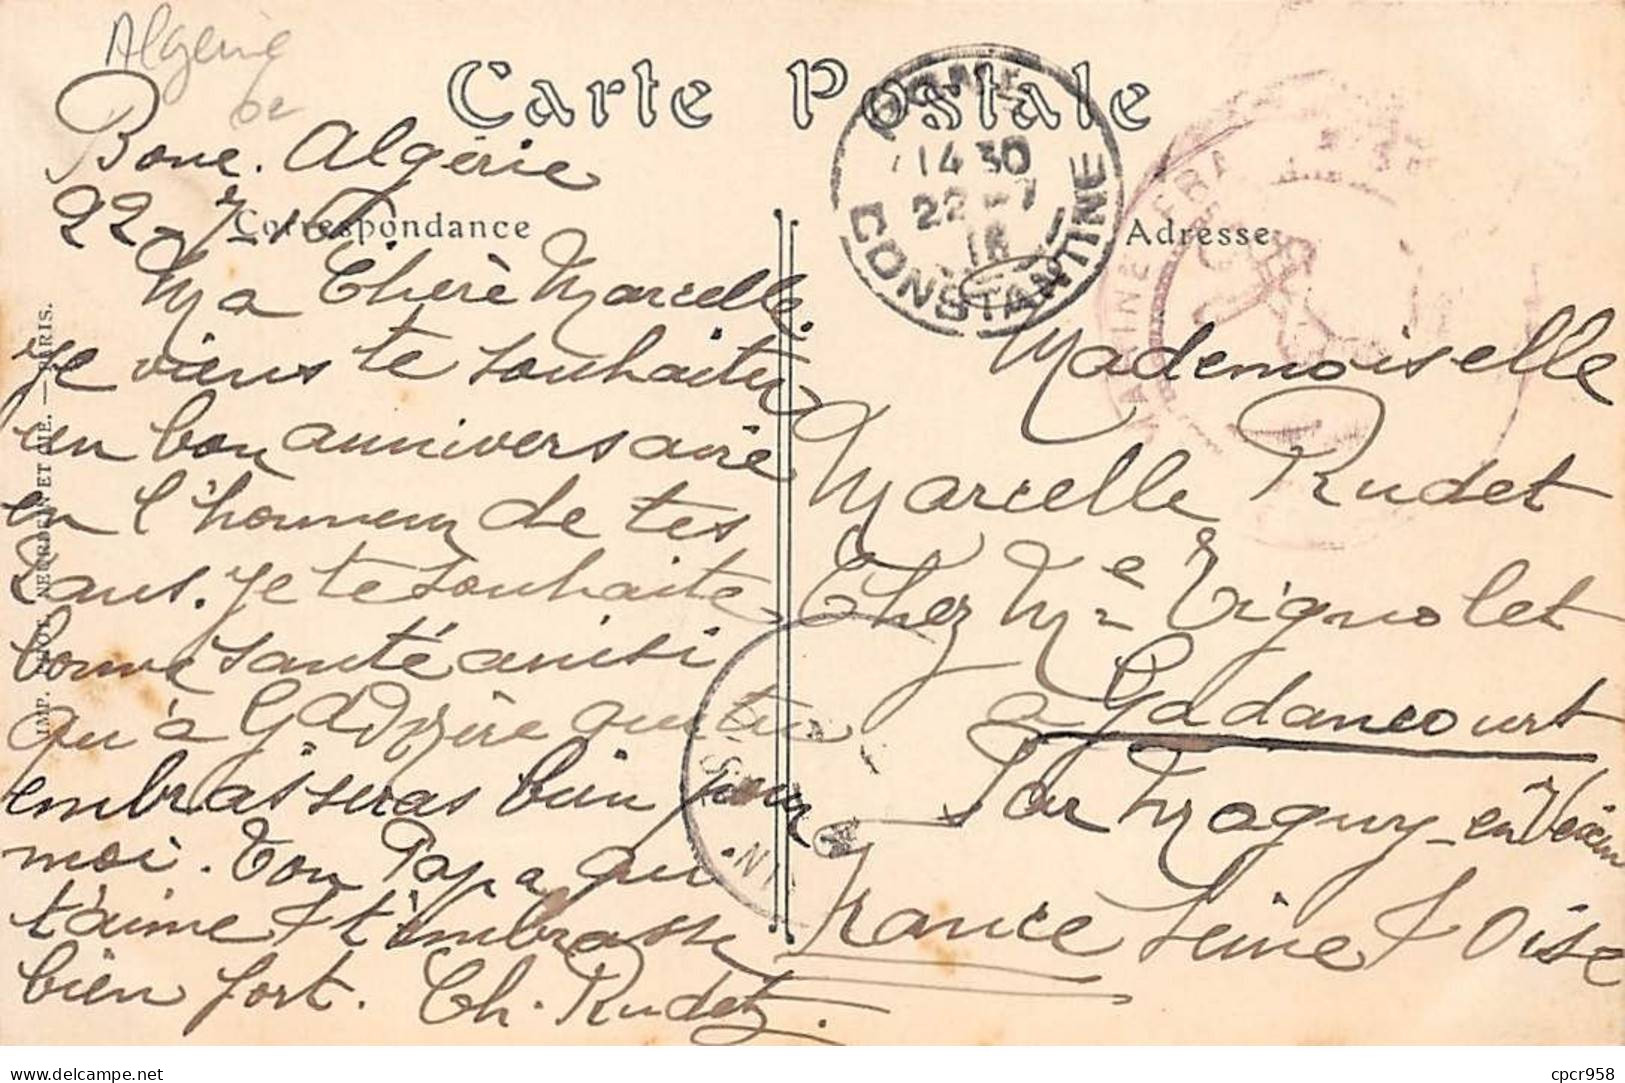 Algérie
Carte Postale
Bone. Algérie
22-7-18
Correspondance
Adresse
BONE
14 30
22 - 7
18
CONSTANTINE
MARINE FRA
Ma Cherè Marcelle.
Je viens te souhaiter
un bon anniversaire
en l'honneur de tes
2 ans. Je te souhaite
bonne santé ainsi
qu'à que tu
embrasseras bien pour
moi. Ton Papa qui
t'aime & t'embrasse
bien fort. Ch. Rudet.
Mademoiselle
Marcelle Rudet
Chez Me Vignolet
a Gadancourt
Par Magny-en Vexin
France Seine & Oise
IMP. PHOT. NEURDEIN ET CIE. — PARIS.
cpcr958